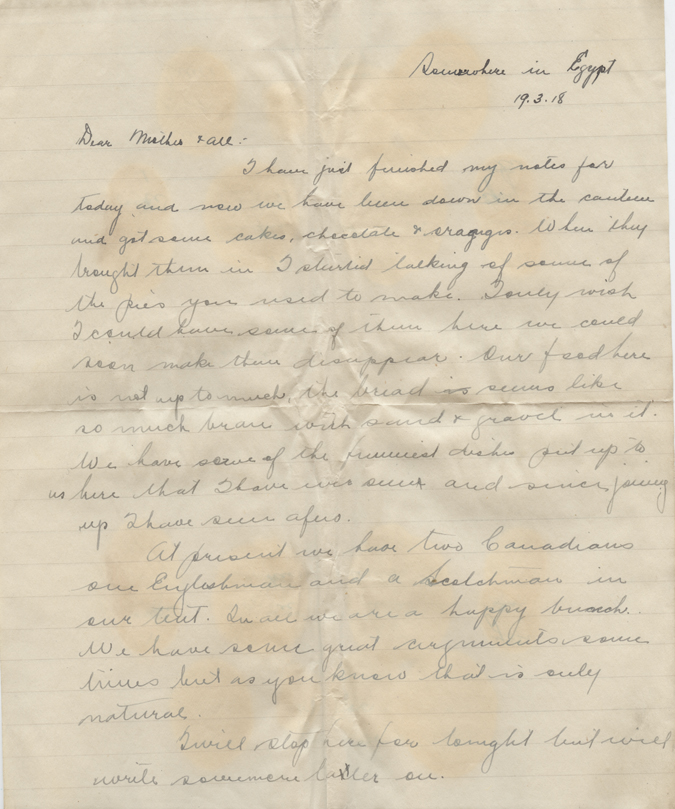 Somewhere in Egypt
19.3.18
Dear Mother & all:-
I have just finished my notes for
today and now we have been down in the canteen
and got some cakes, chocolate & oranges. When they
brought them in I started talking of some of
the pies you used to make. I only wish
I could have some of them here we could
soon make them disappear. Our food here
is not up to much, the bread is seems like
so much brare with sand & gravel in it.
We have some of the funniest dishes put up to
us here that I have ever seen and since joining
up I have seen afew.
At present we have two Canadians
one Englishman and a Scotchman in
our tent. In all we are a happy bunch.
We have some great arguments some
times but as you know that is only
natural.
I will stop here for tonight but will
write somemore later on.